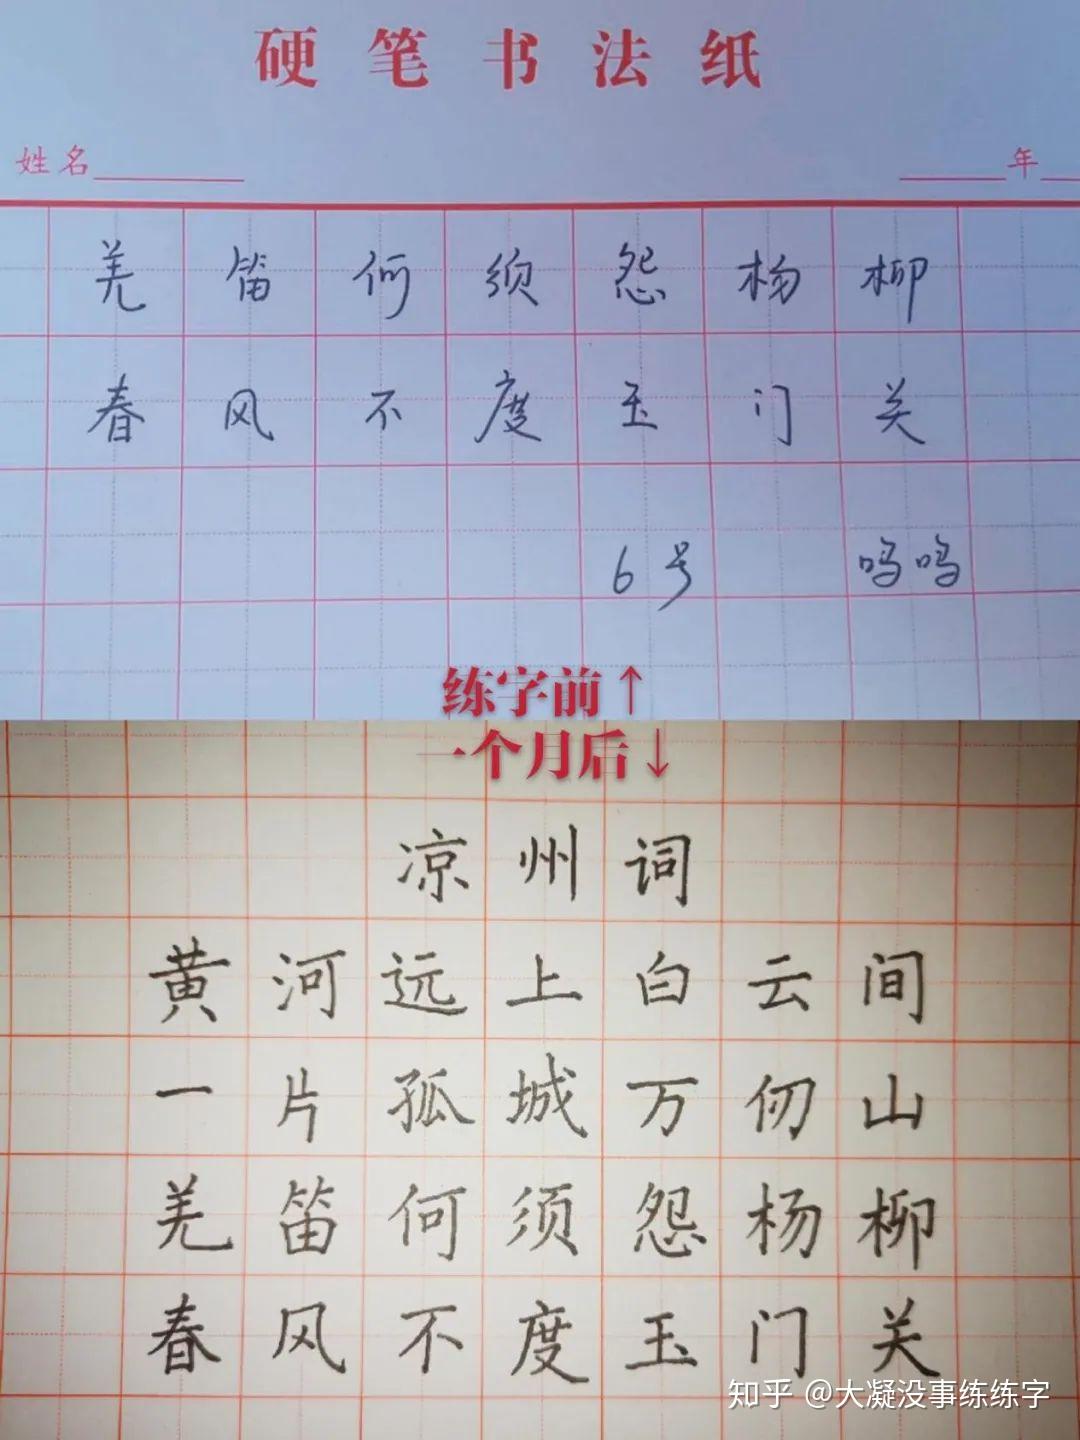 硬笔书法纸
姓名 年
羌笛何须怨杨柳
春风不度玉门关
6号 呜呜
练字前↑
一个月后↓
凉州词
黄河远上白云间
一片孤城万仞山
羌笛何须怨杨柳
春风不度玉门关
知乎 @大凝没事练练字